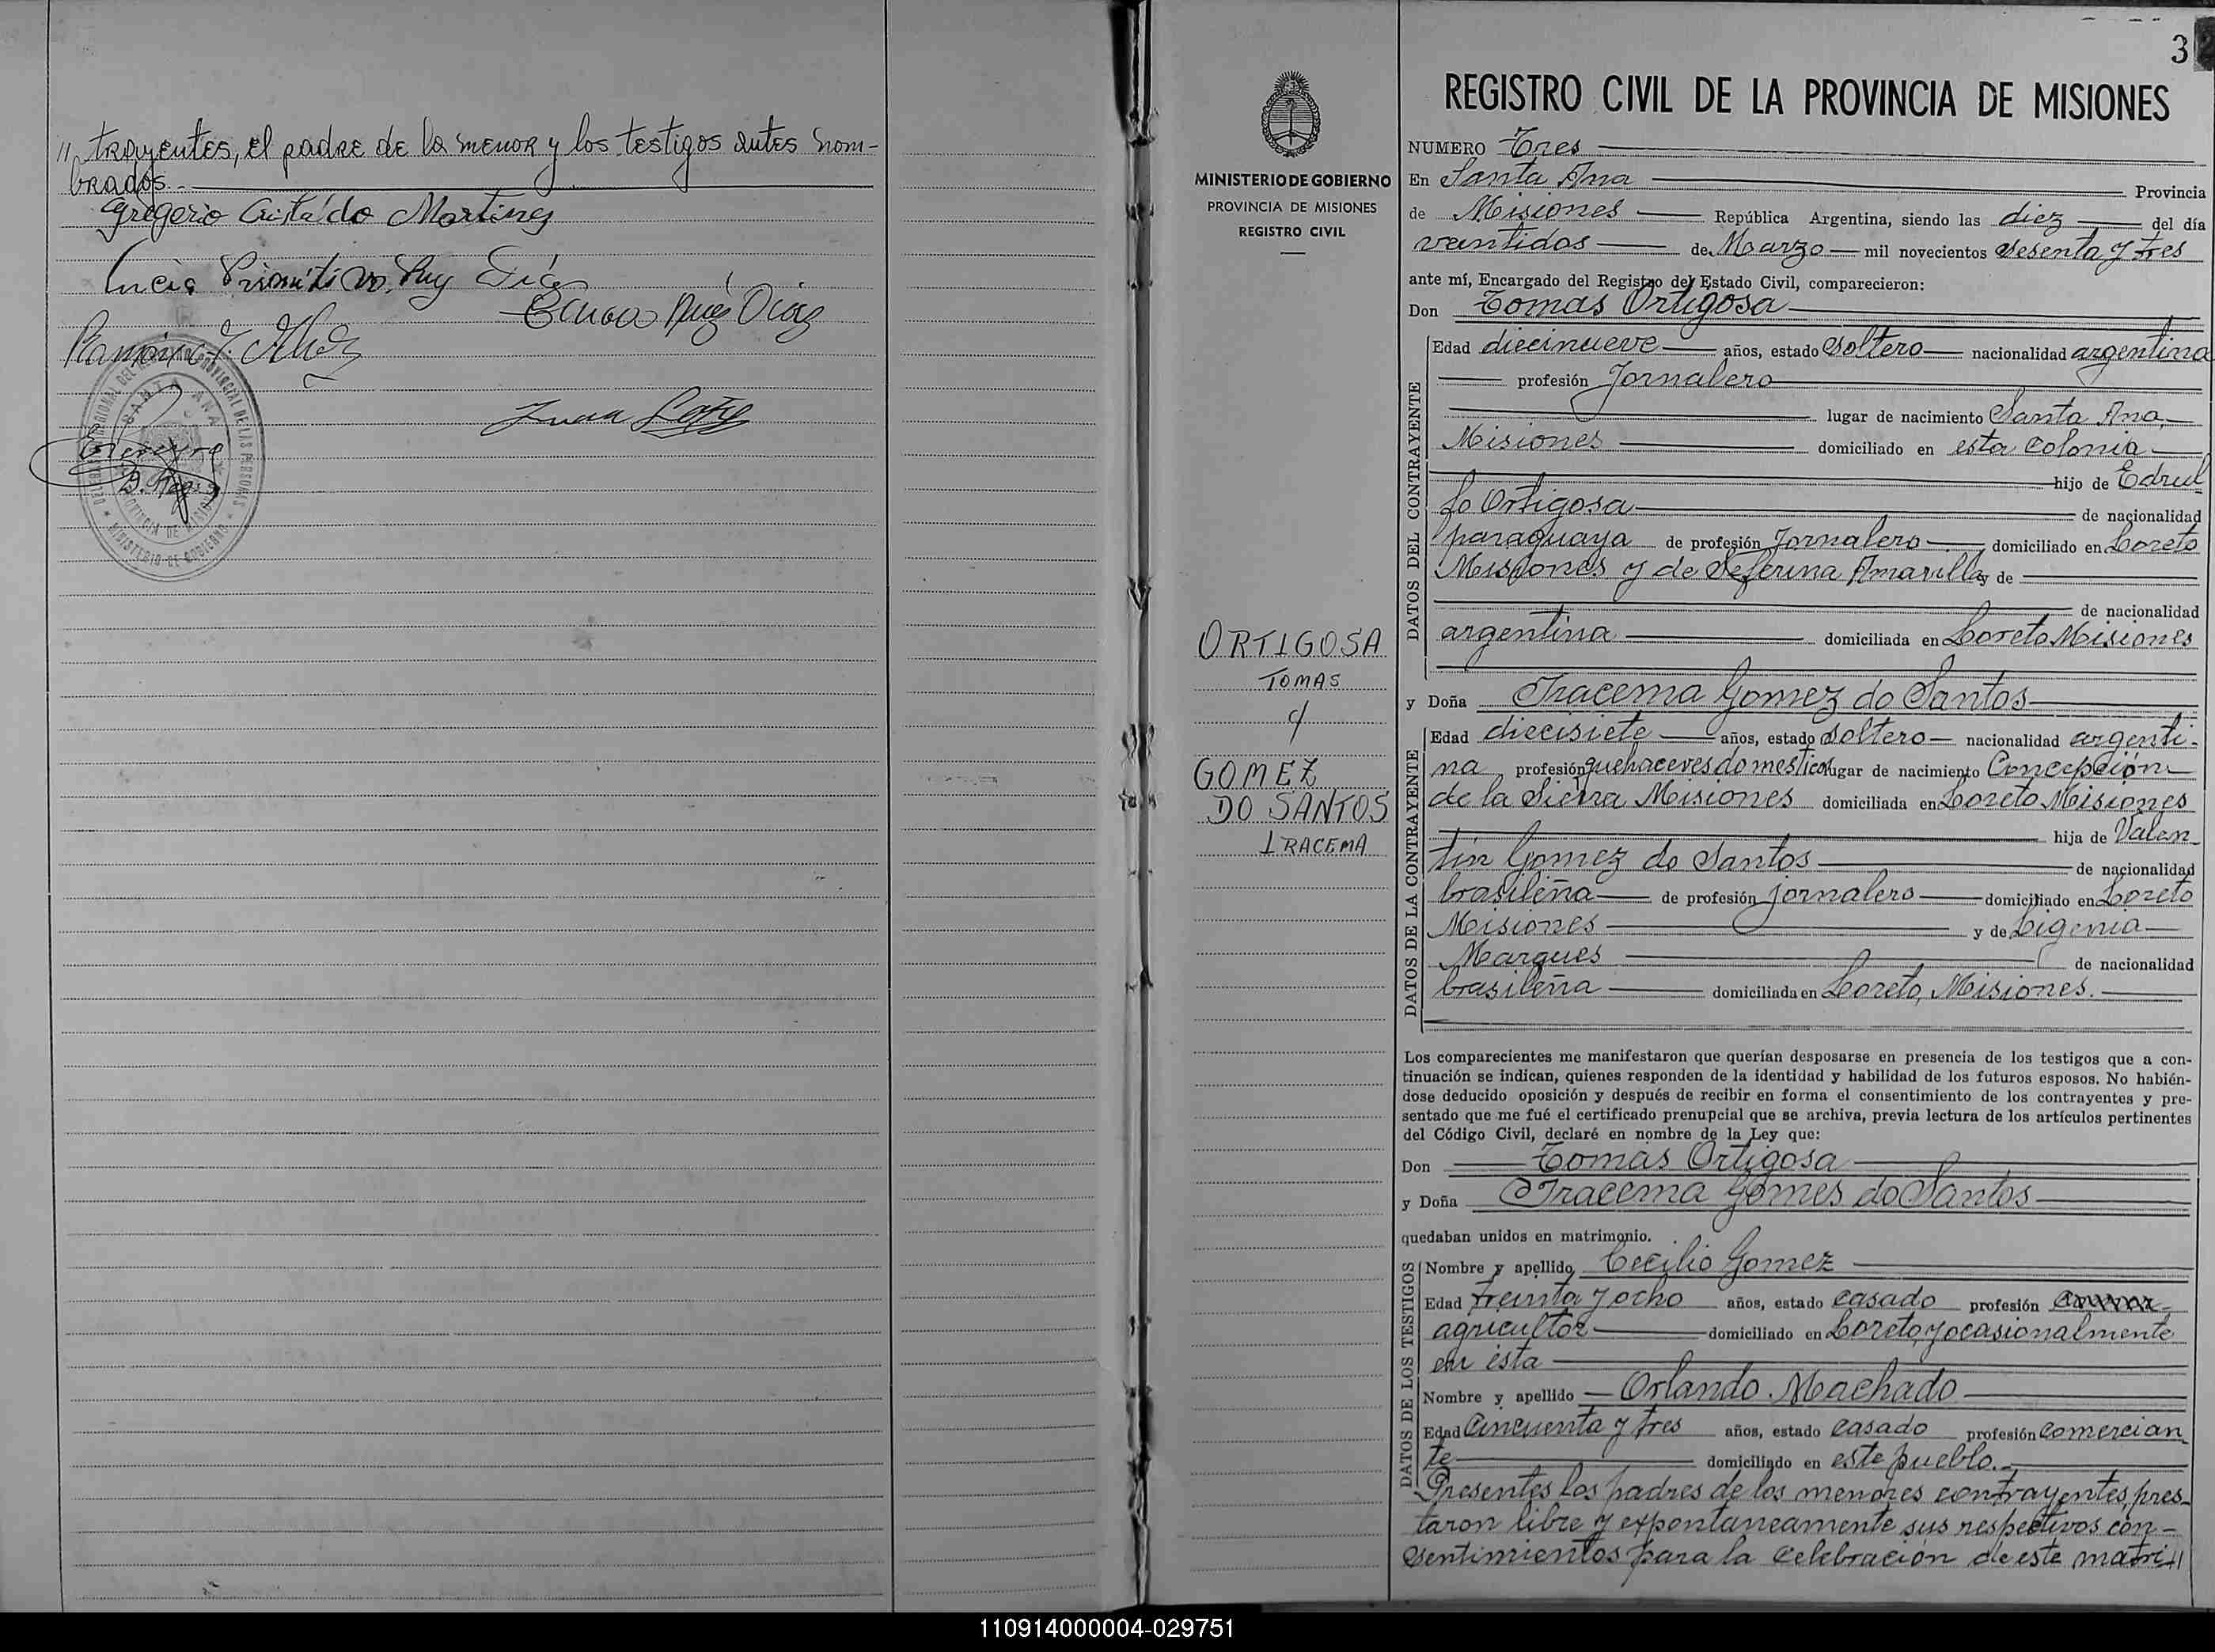 " trayentes, el padre de la menor y los testigos antes nom-
brados.-
Gregorio Cristaldo Martinez
Lucia Primitiva Ruiz Diaz
Ruiz Diaz
Ramón
Juan
DEL REGISTRO PROVINCIAL DE LAS PERSONAS
SANTA ANA
PROVINCIA DE MISIONES
MINISTERIO DE GOBIERNO
3
MINISTERIO DE GOBIERNO
PROVINCIA DE MISIONES
REGISTRO CIVIL
ORTIGOSA
TOMAS
y
GOMEZ
DO SANTOS
IRACEMA
REGISTRO CIVIL DE LA PROVINCIA DE MISIONES
NUMERO Tres
En Santa Ana Provincia
de Misiones República Argentina, siendo las diez del día
veintidos de Marzo mil novecientos sesenta y tres
ante mí, Encargado del Registro del Estado Civil, comparecieron:
Don Tomas Ortigosa
DATOS DEL CONTRAYENTE
Edad diecinueve años, estado soltero nacionalidad argentina
profesión Jornalero
lugar de nacimiento Santa Ana,
Misiones domiciliado en esta colonia
hijo de Edrul
fo Ortigosa de nacionalidad
paraguaya de profesión Jornalero domiciliado en Loreto
Misiones y de Seferina Amarilla y de
de nacionalidad
argentina domiciliada en Loreto Misiones
y Doña Iracema Gomez do Santos
DATOS DE LA CONTRAYENTE
Edad diecisiete años, estado soltero nacionalidad argenti-
na profesión quehaceres domesticos lugar de nacimiento Concepción
de la Sierra Misiones domiciliada en Loreto Misiones
hija de Valen
tin Gomez do Santos de nacionalidad
brasileña de profesión jornalero domiciliado en Loreto
Misiones y de Ligenia
Marques de nacionalidad
brasileña domiciliada en Loreto, Misiones.
Los comparecientes me manifestaron que querían desposarse en presencia de los testigos que a con-
tinuación se indican, quienes responden de la identidad y habilidad de los futuros esposos. No habién-
dose deducido oposición y después de recibir en forma el consentimiento de los contrayentes y pre-
sentado que me fué el certificado prenupcial que se archiva, previa lectura de los artículos pertinentes
del Código Civil, declaré en nombre de la Ley que:
Don Tomas Ortigosa
y Doña Iracema Gomes do Santos
quedaban unidos en matrimonio.
DATOS DE LOS TESTIGOS
Nombre y apellido Cecilio Gomez
Edad treinta y ocho años, estado casado profesión
agricultor domiciliado en Loreto, y ocasionalmente
en ésta
Nombre y apellido Orlando Machado
Edad Cincuenta y tres años, estado casado profesión comercian
te domiciliado en este pueblo.-
Presentes los padres de los menores contrayentes, pres-
taron libre y expontaneamente sus respectivos con-
sentimientos para la celebración de este matri-//
110914000004-029751